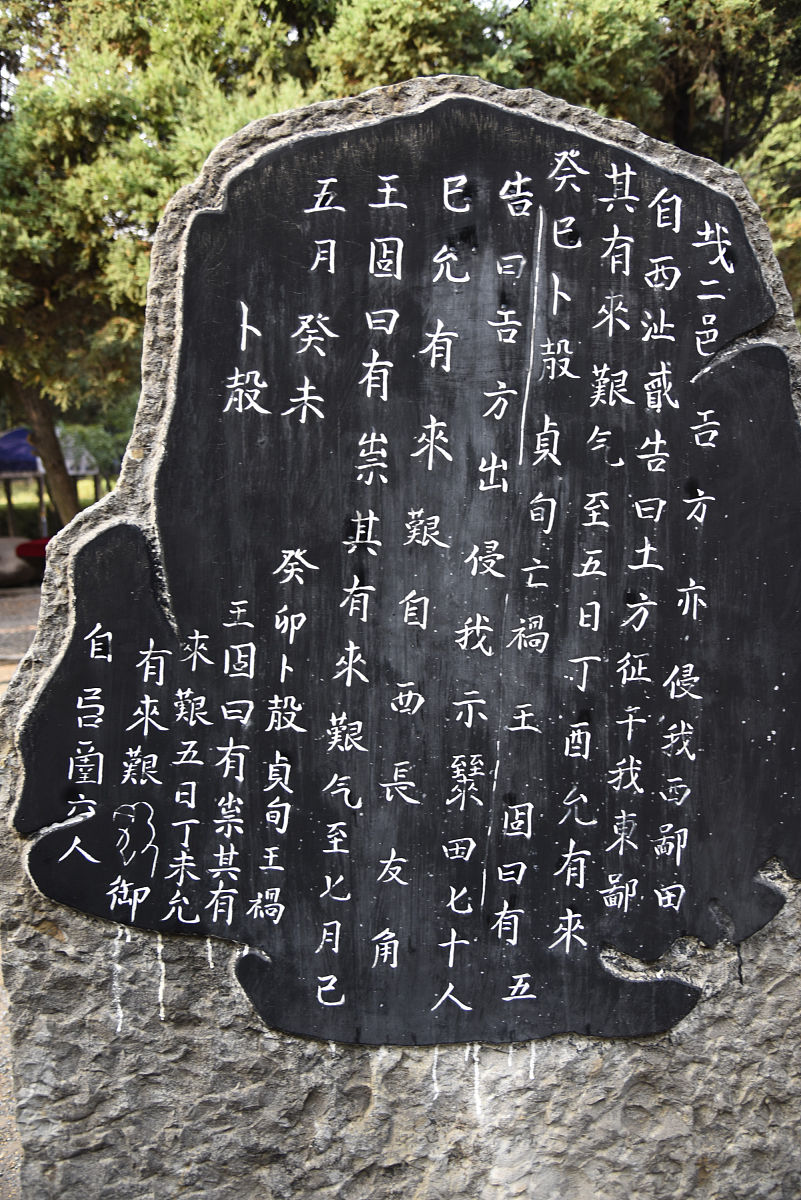 𢦏二邑𢀛方亦侵我西鄙田
自西沚告曰土方征于我東鄙
其有來艱气至五日丁酉允有來
癸巳卜㱿貞旬亡禍王固曰有五
告曰𢀛方出侵我示田七十人
巳允有來艱自西長友角
王固曰有祟其有來艱气至七月己
五月癸未
卜㱿
癸卯卜㱿貞旬王禍
王固曰有祟其有
來艱五日丁未允
有來艱御
自呂六人